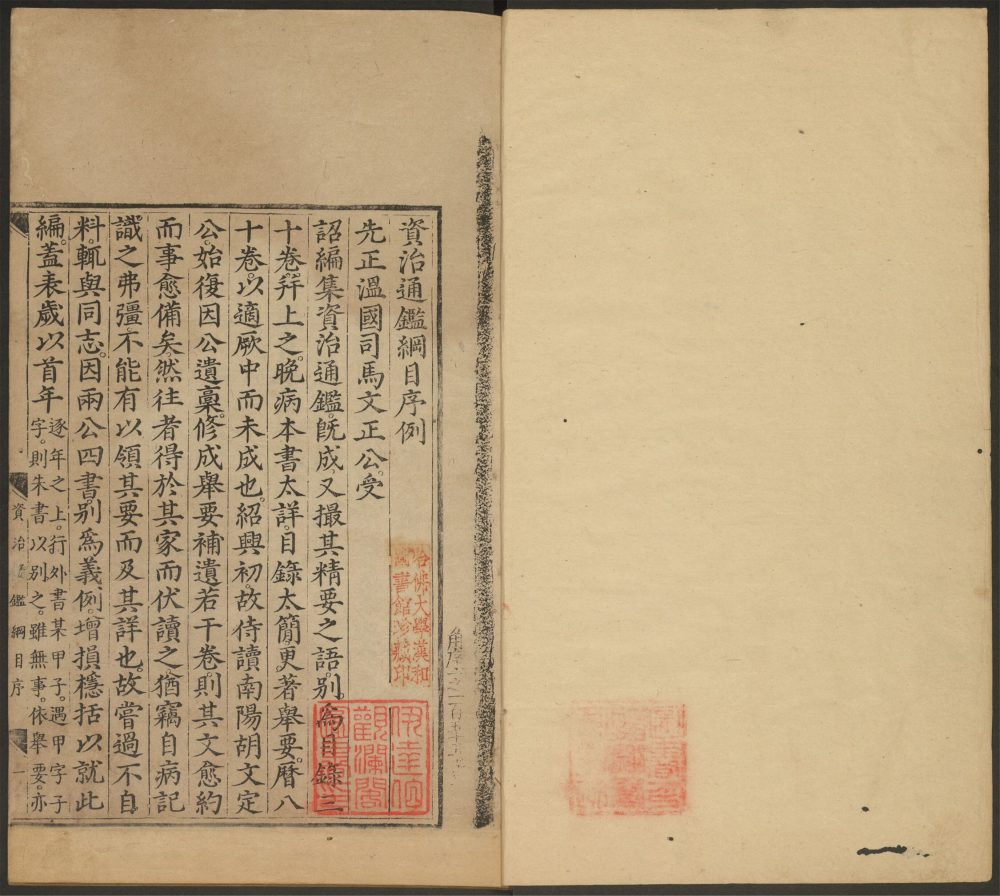 資治通鑑綱目序例
先正溫國司馬文正公。受
詔編集資治通鑑。旣成。又撮其精要之語。別爲目錄三
十卷。幷上之。晚病本書太詳。目錄太簡。更著舉要曆八
十卷。以適厥中而未成也。紹興初。故侍讀南陽胡文定
公。始復因公遺稾。修成舉要補遺若干卷。則其文愈約
而事愈備矣。然往者得於其家而伏讀之。猶竊自病記
識之弗彊。不能有以領其要而及其詳也。故嘗過不自
料。輒與同志。因兩公四書。別爲義例。增損檃括。以就此
編。蓋表歲以首年
逐年之上。行外書某甲子。遇甲字子
字。則朱書以別之。雖無事。依舉要。亦
資治通鑑綱目序
一
哈佛大學漢和
圖書館珍藏印
觀瀾閣